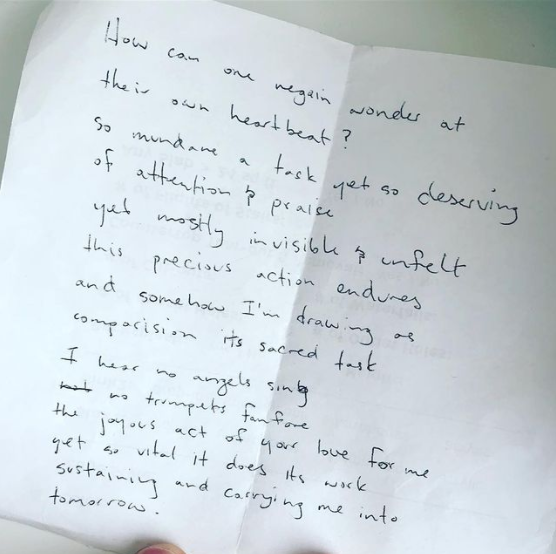 How can one regain wonder at
their own heartbeat?
So mundane a task yet so deserving
of attention & praise
yet mostly invisible & unfelt
this precious action endures
and somehow I'm drawing as
comparision its sacred task
I hear no angels sing
no trumpets fanfare
the joyous act of your love for me
yet so vital it does its work
sustaining and carrying me into
tomorrow.